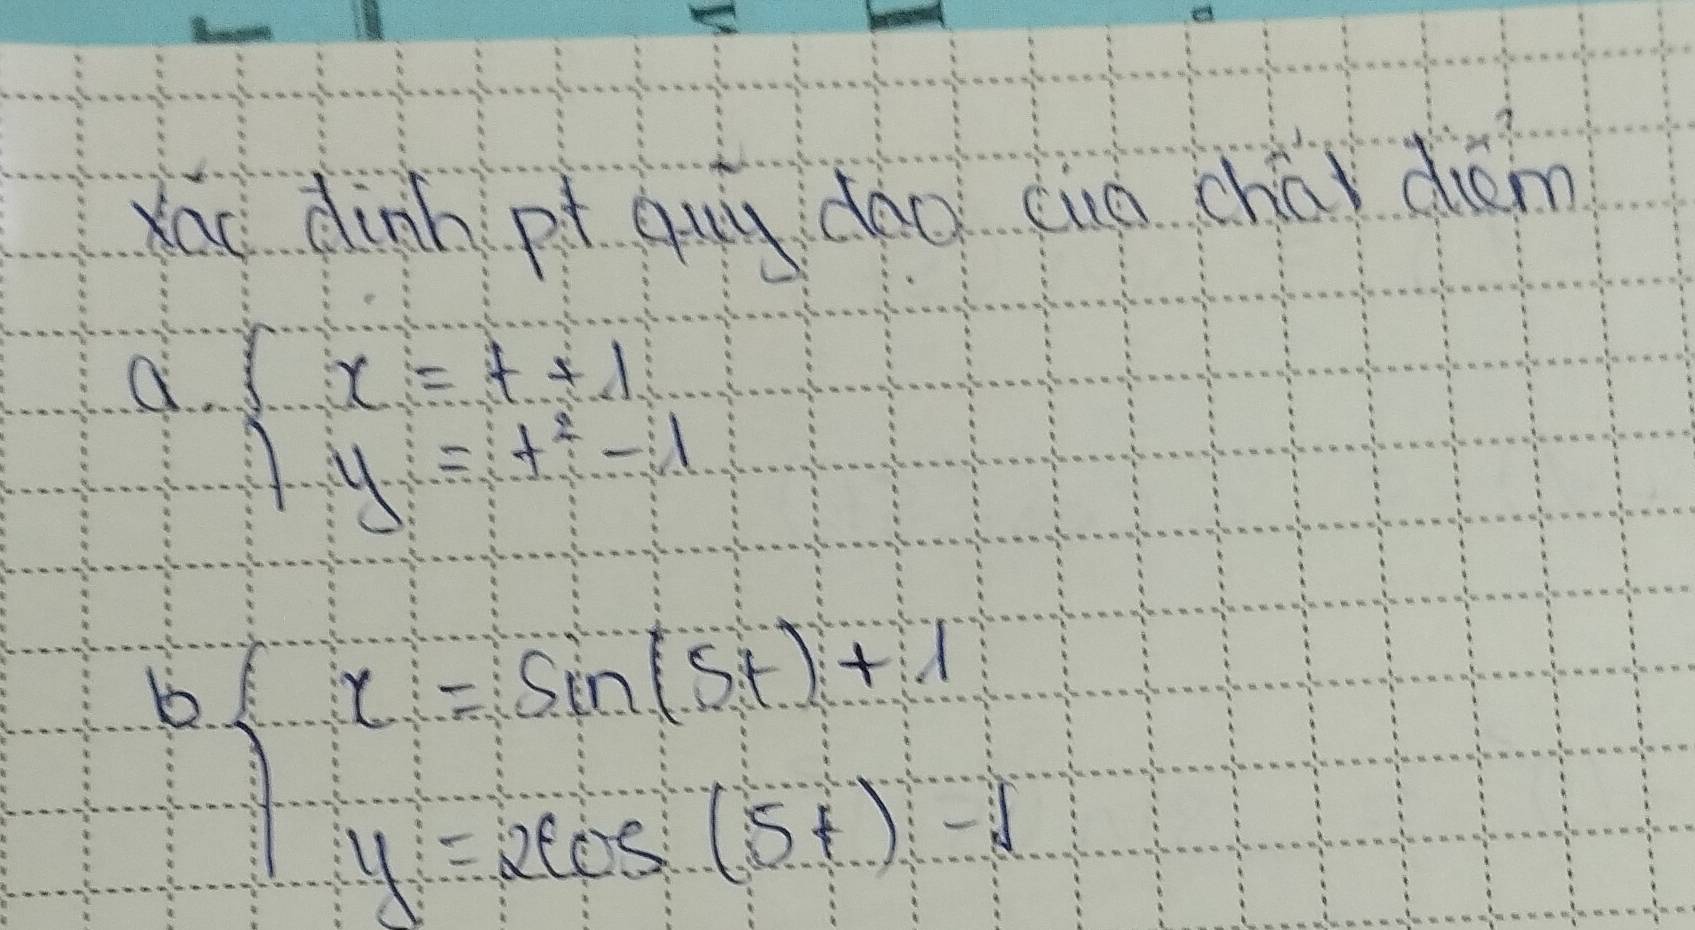 xác định pt quỹ đạo của chất điểm
a. { x = t + 1
y = t² - 1
b { x = sin(5t) + 1
y = 2cos (5t) - 1